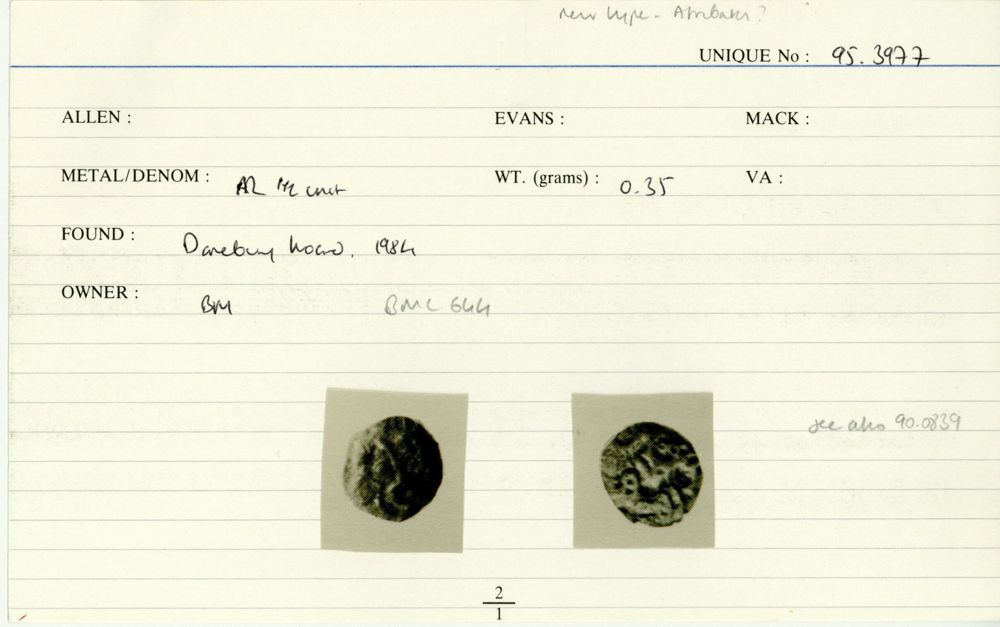 new type - Atrebates?
UNIQUE No : 95.3977
ALLEN : EVANS : MACK :
METAL/DENOM : AR 1/2 unit WT. (grams) : 0.35 VA :
FOUND : Danebury hoard, 1984
OWNER : BM BMC 644
see also 90.0839
2
1